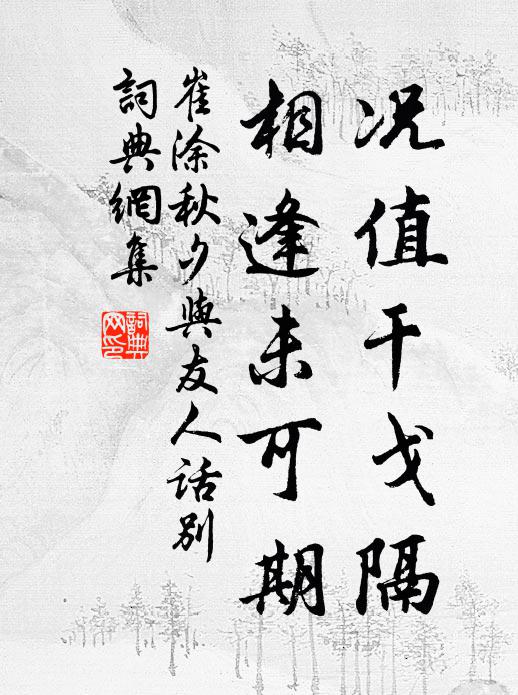 况值干戈隔
相逢未可期
崔涂秋夕與友人话别
詞典網集
詞典網印